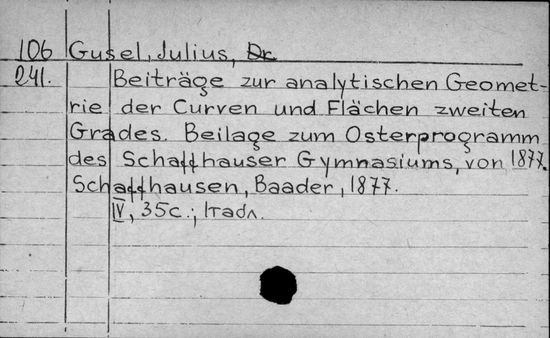 106 Gusel, Julius, Dr.
241. Beiträge zur analytischen Geomet-
rie der Curven und Flächen zweiten
Grades. Beilage zum Osterprogramm
des Schaffhauser Gymnasiums, von 1877.
Schaffhausen, Baader, 1877.
IV, 35с.; 1табл.